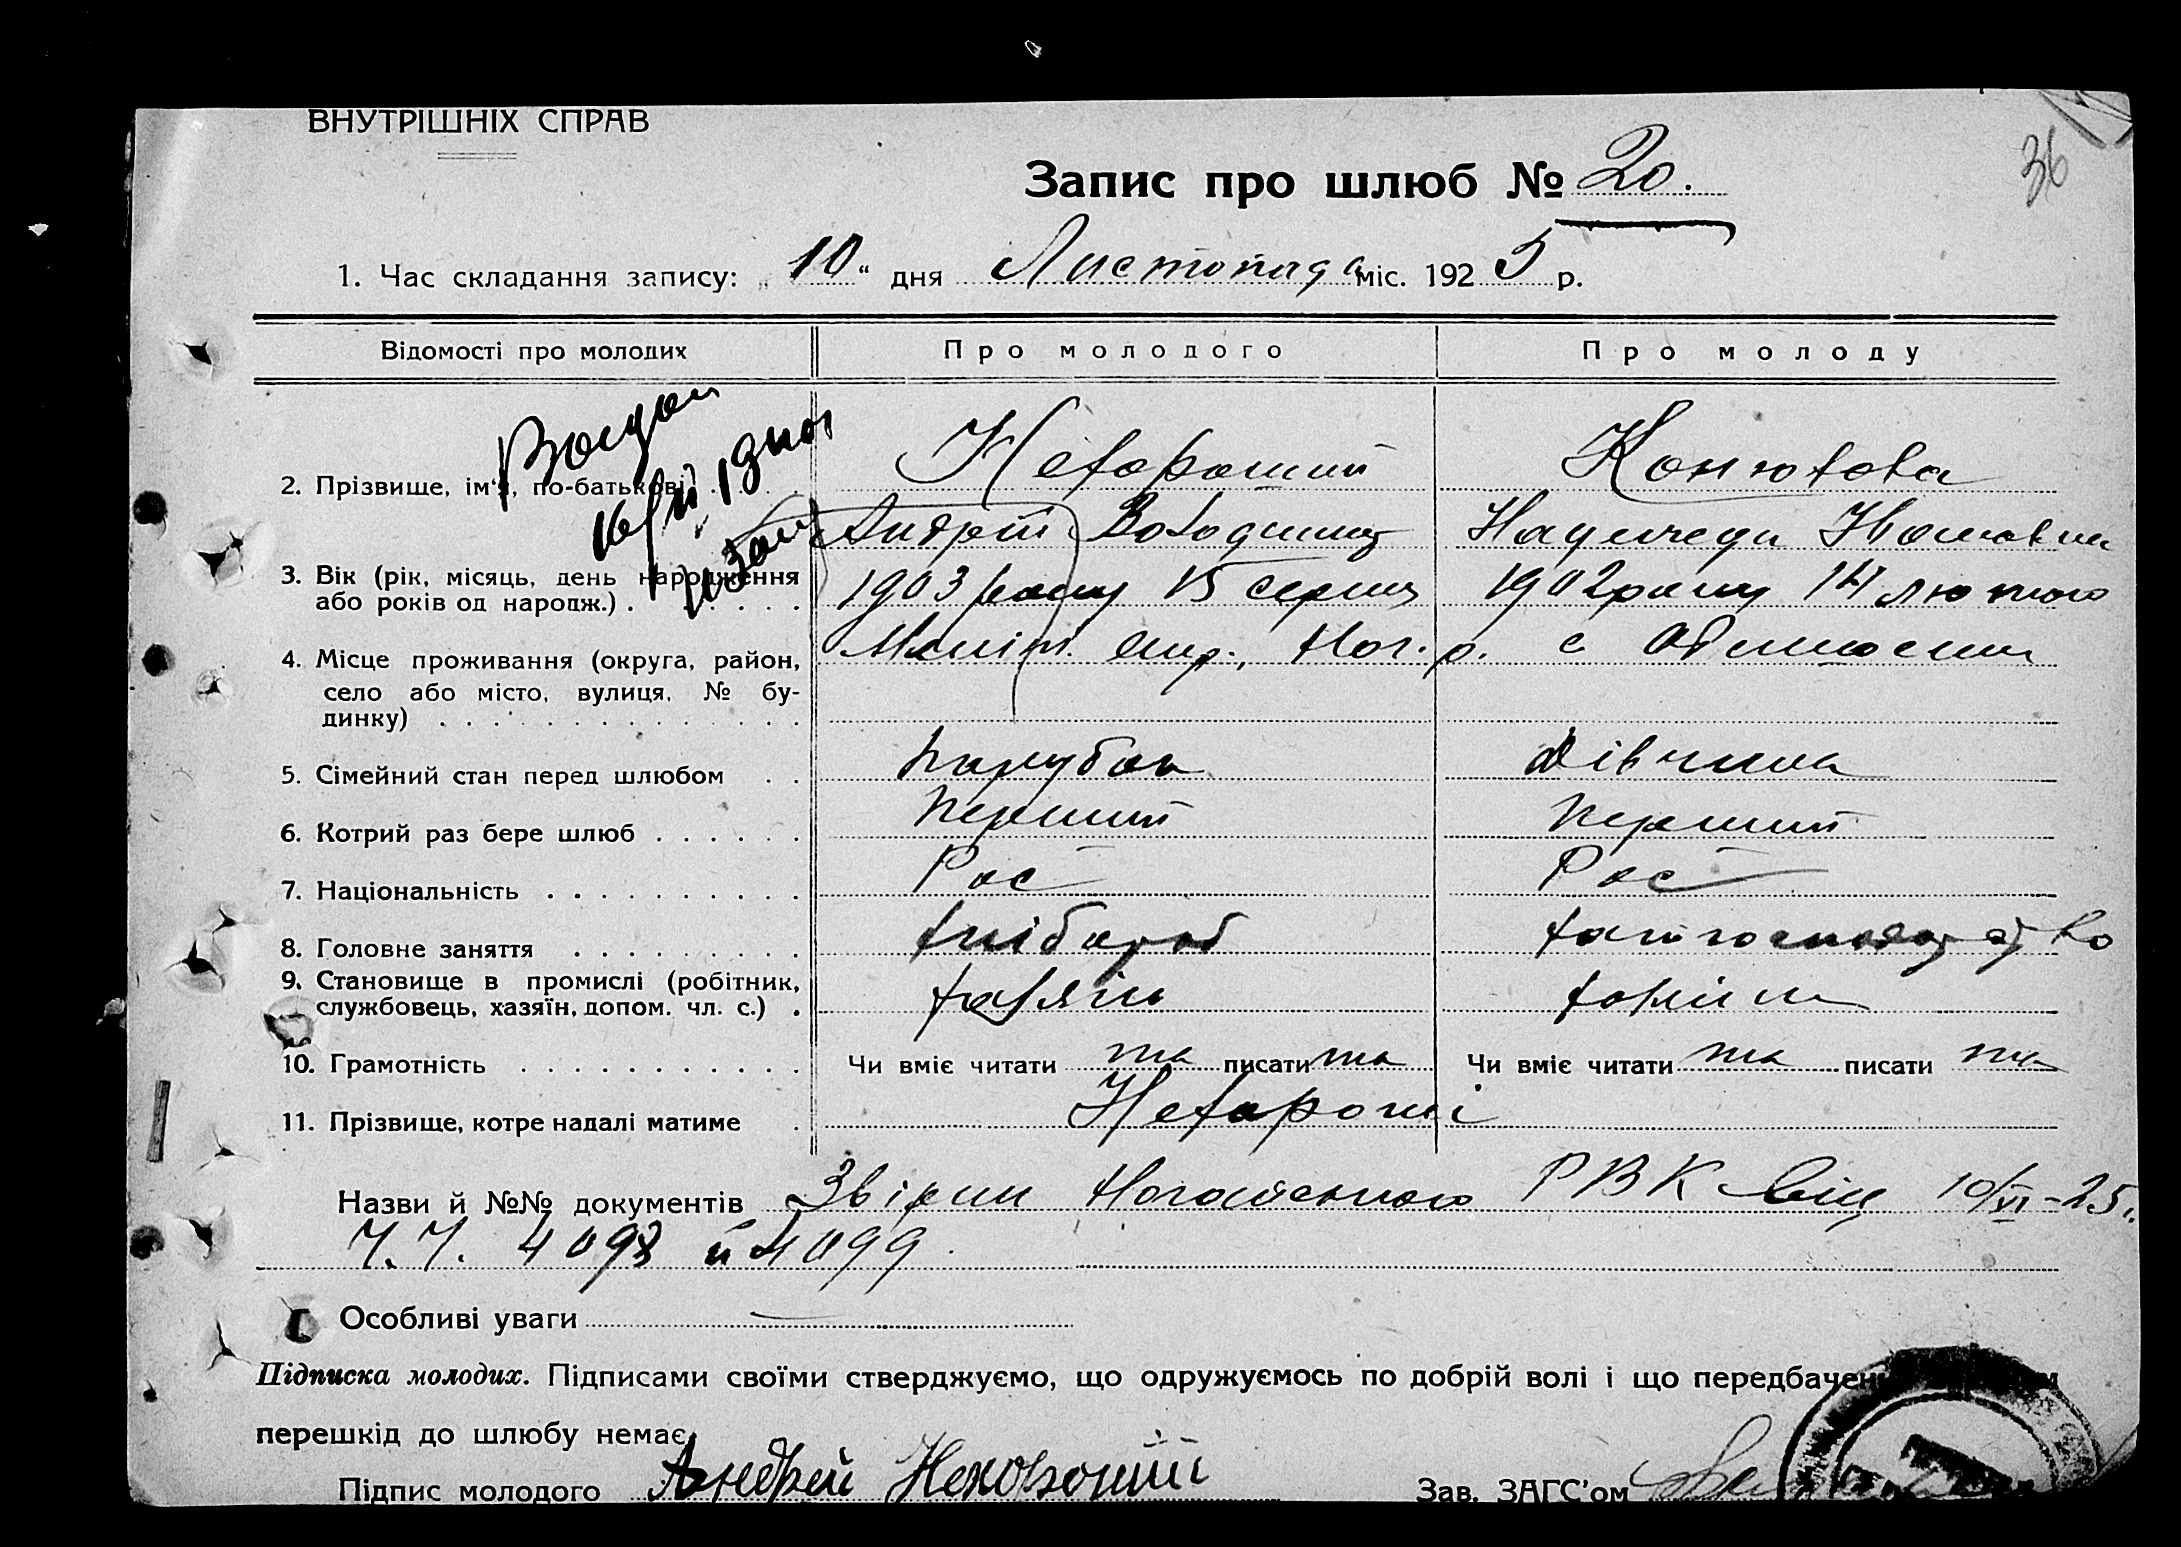 ВНУТРІШНІХ СПРАВ
36
Запис про шлюб № 20.
1. Час складання запису: „10“ дня Листопада міс. 1925 р.
Відомості про молодих Про молодого Про молоду
2. Прізвище, ім'я, по-батькові Нехороший
Андрій Володимир Надежда
3. Вік (рік, місяць, день народження 1903 року 15 серпня 1902 року 14 лютого
або років од народж.)
4. Місце проживання (округа, район, с
село або місто, вулиця, № бу-
динку)
5. Сімейний стан перед шлюбом парубок дівчина
6. Котрий раз бере шлюб перший перший
7. Національність Рос Рос
8. Головне заняття хлібороб
9. Становище в промислі (робітник, хазяїн
службовець, хазяїн, допом. чл. с.)
10. Грамотність Чи вміє читати та писати та Чи вміє читати та писати та
11. Прізвище, котре надалі матиме Нехороші
Назви й №№ документів РВК від 10/VI-25
Ч.Ч. 4098 й 4099
Особливі уваги
Підписка молодих. Підписами своїми стверджуємо, що одружуємось по добрій волі і що
перешкід до шлюбу немає.
Підпис молодого Андрей Нехороший Зав. ЗАГС'ом